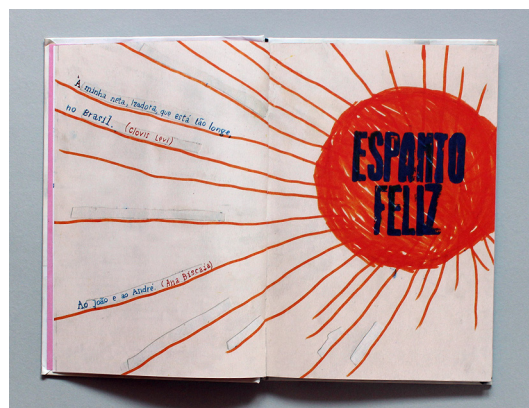 À minha neta, Izadora, que está tão longe,
no Brasil. (Clovis Levi)
Ao João e ao André. (Ana Biscaia)
ESPANTO
FELIZ